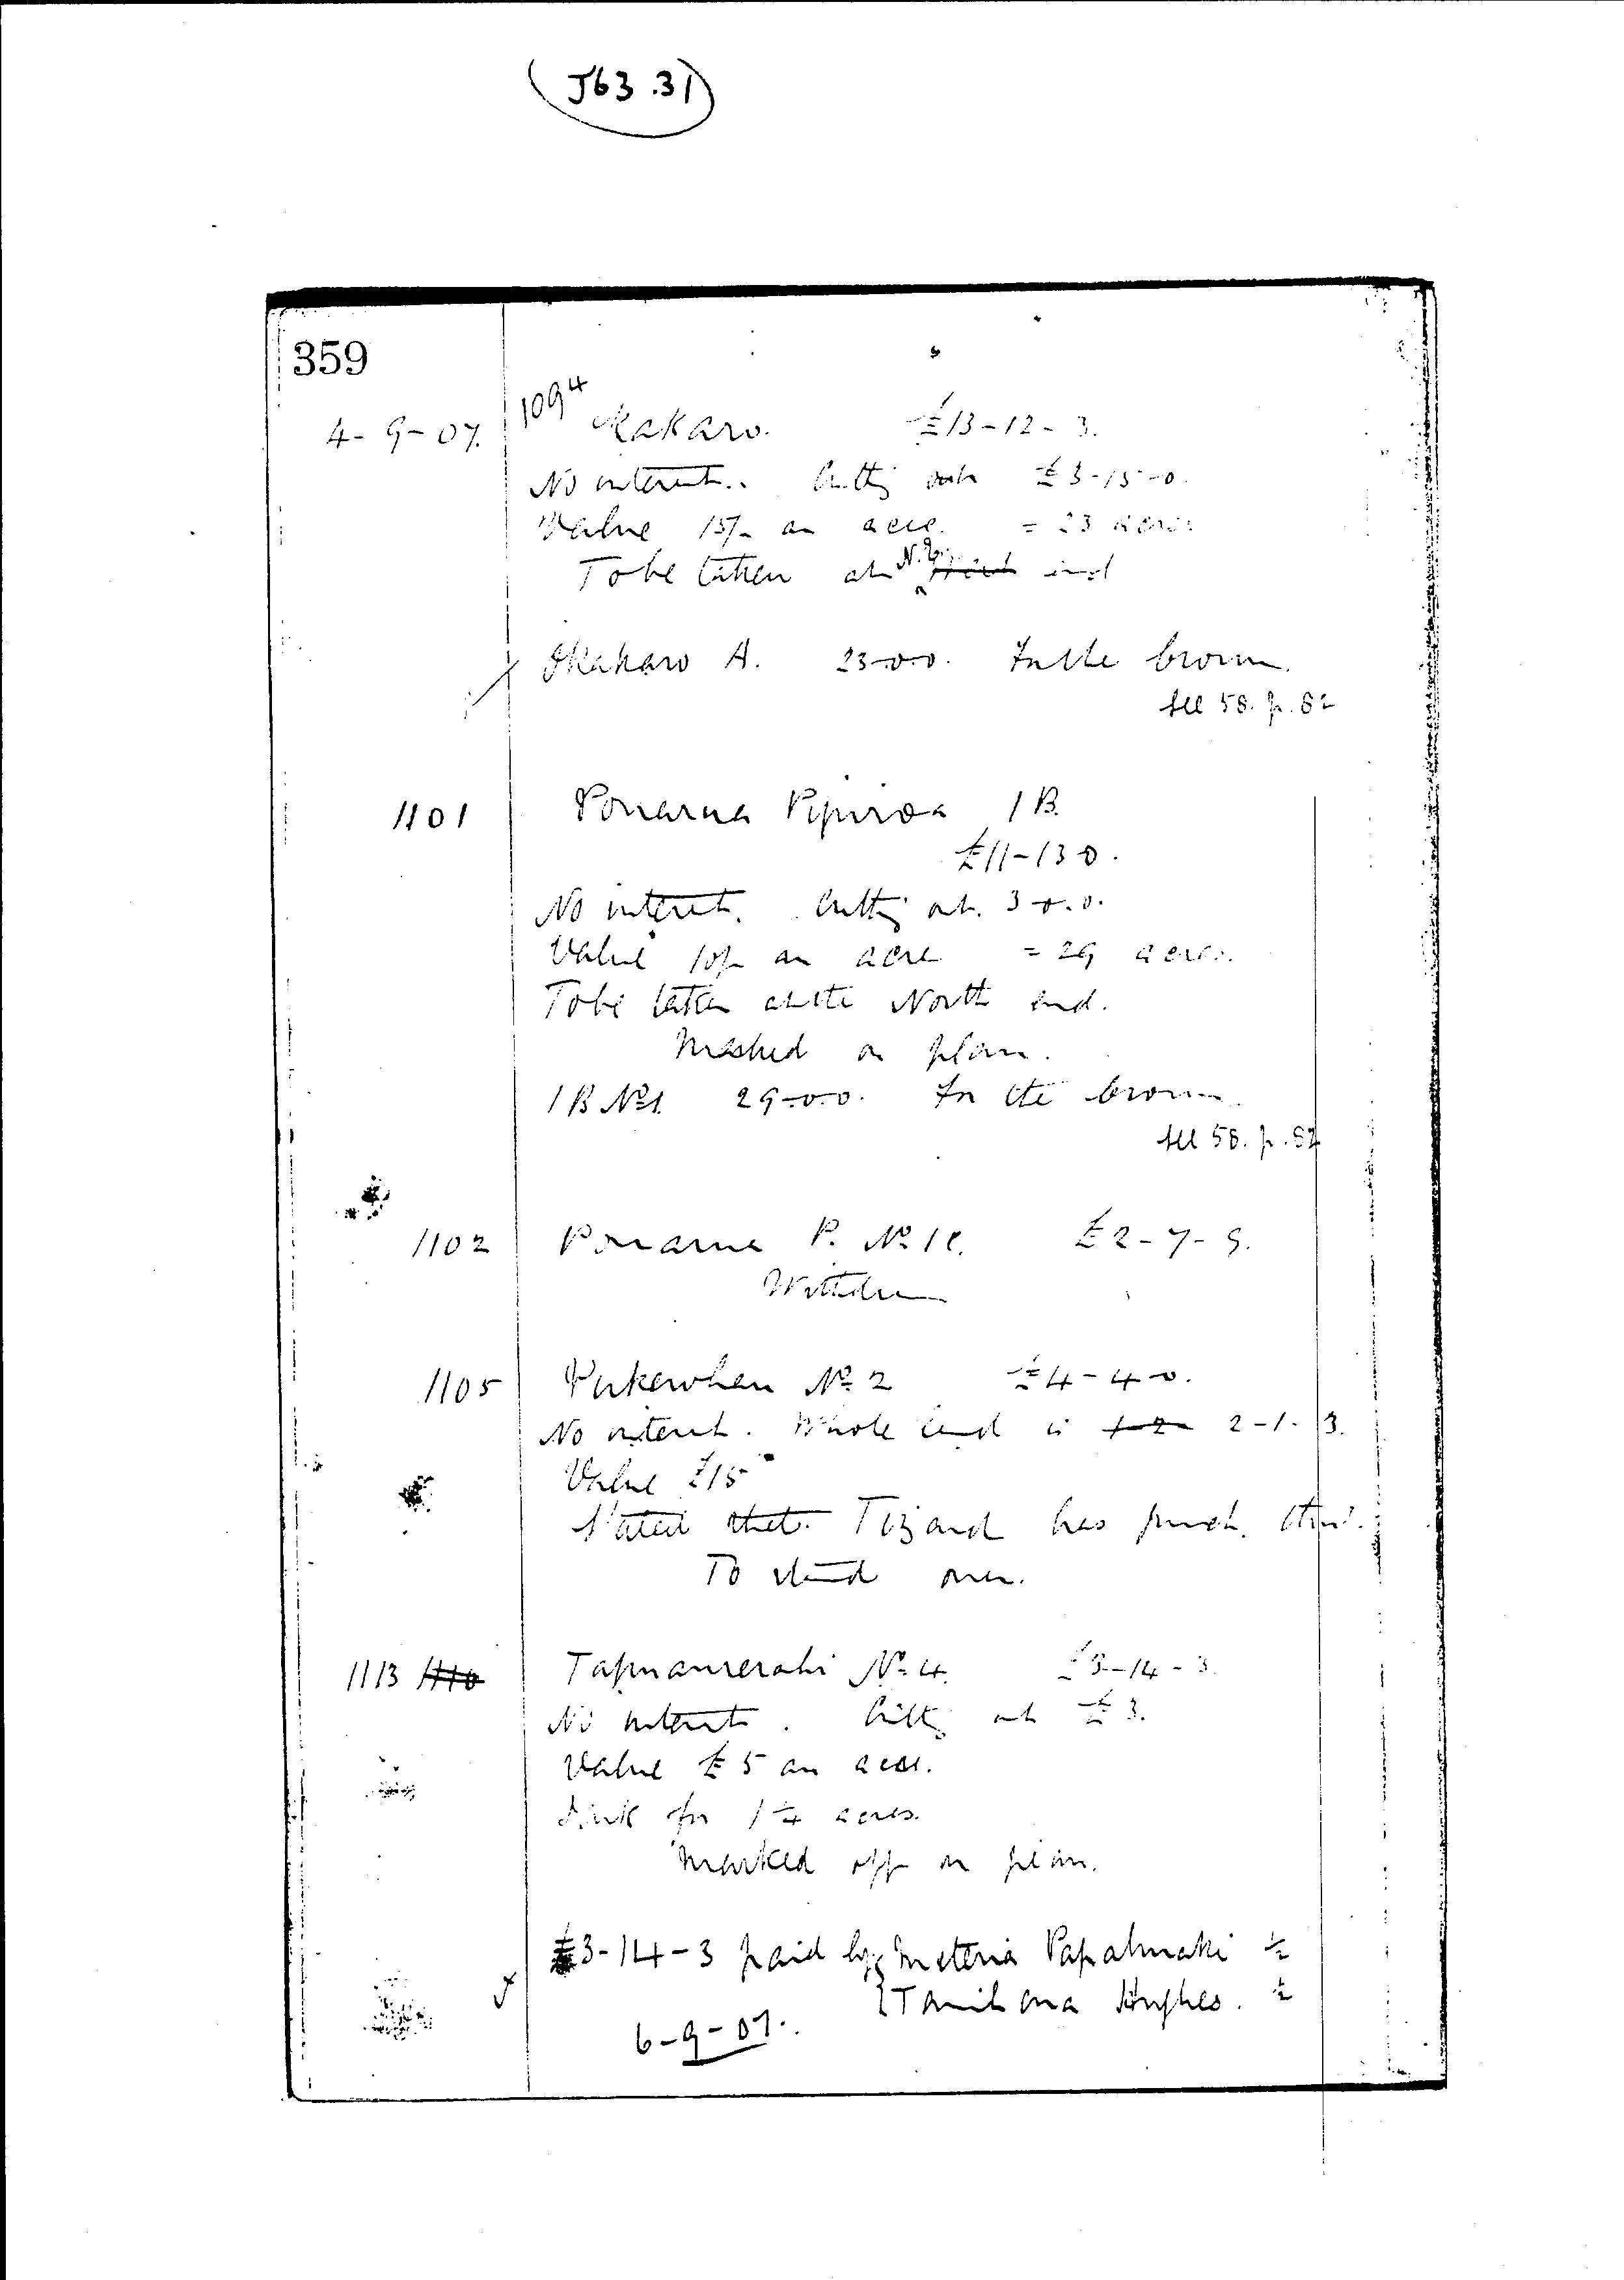 J63.31
359
4-9-07. 1094 Okakaro. £13-12-3.
No interest. Cutting out £3-15-0.
Value 15/- an acre. = 23 acres
To be taken at N.E. end
Okakaro A. 23-0-0. To the Crown.
See 58. p. 82
1101 Ponarua Pipiroa 1B.
£11-13-0.
No interest. Cutting out. 3-0-0.
Value 10/- an acre = 29 acres.
To be taken at the North end.
Marked on plan.
1B No 1. 29-0-0. To the Crown.
See 58. p. 82
1102 Ponarua P. No 1C. £2-7-9.
Withdrawn
1105 Pukewhau No 2 £4-4-0.
No interest. Whole land is 2-1-13.
Value £15
Stated that Tizard has purch. this.
To stand over.
1113 1110 No 4. £3-14-3.
No interest. Cutting out £3.
Value £5 an acre.
for 1¼ acres.
Marked off on plan.
£3-14-3 paid by Meteria ½
Tamihana Hughes. ½
6-9-07.